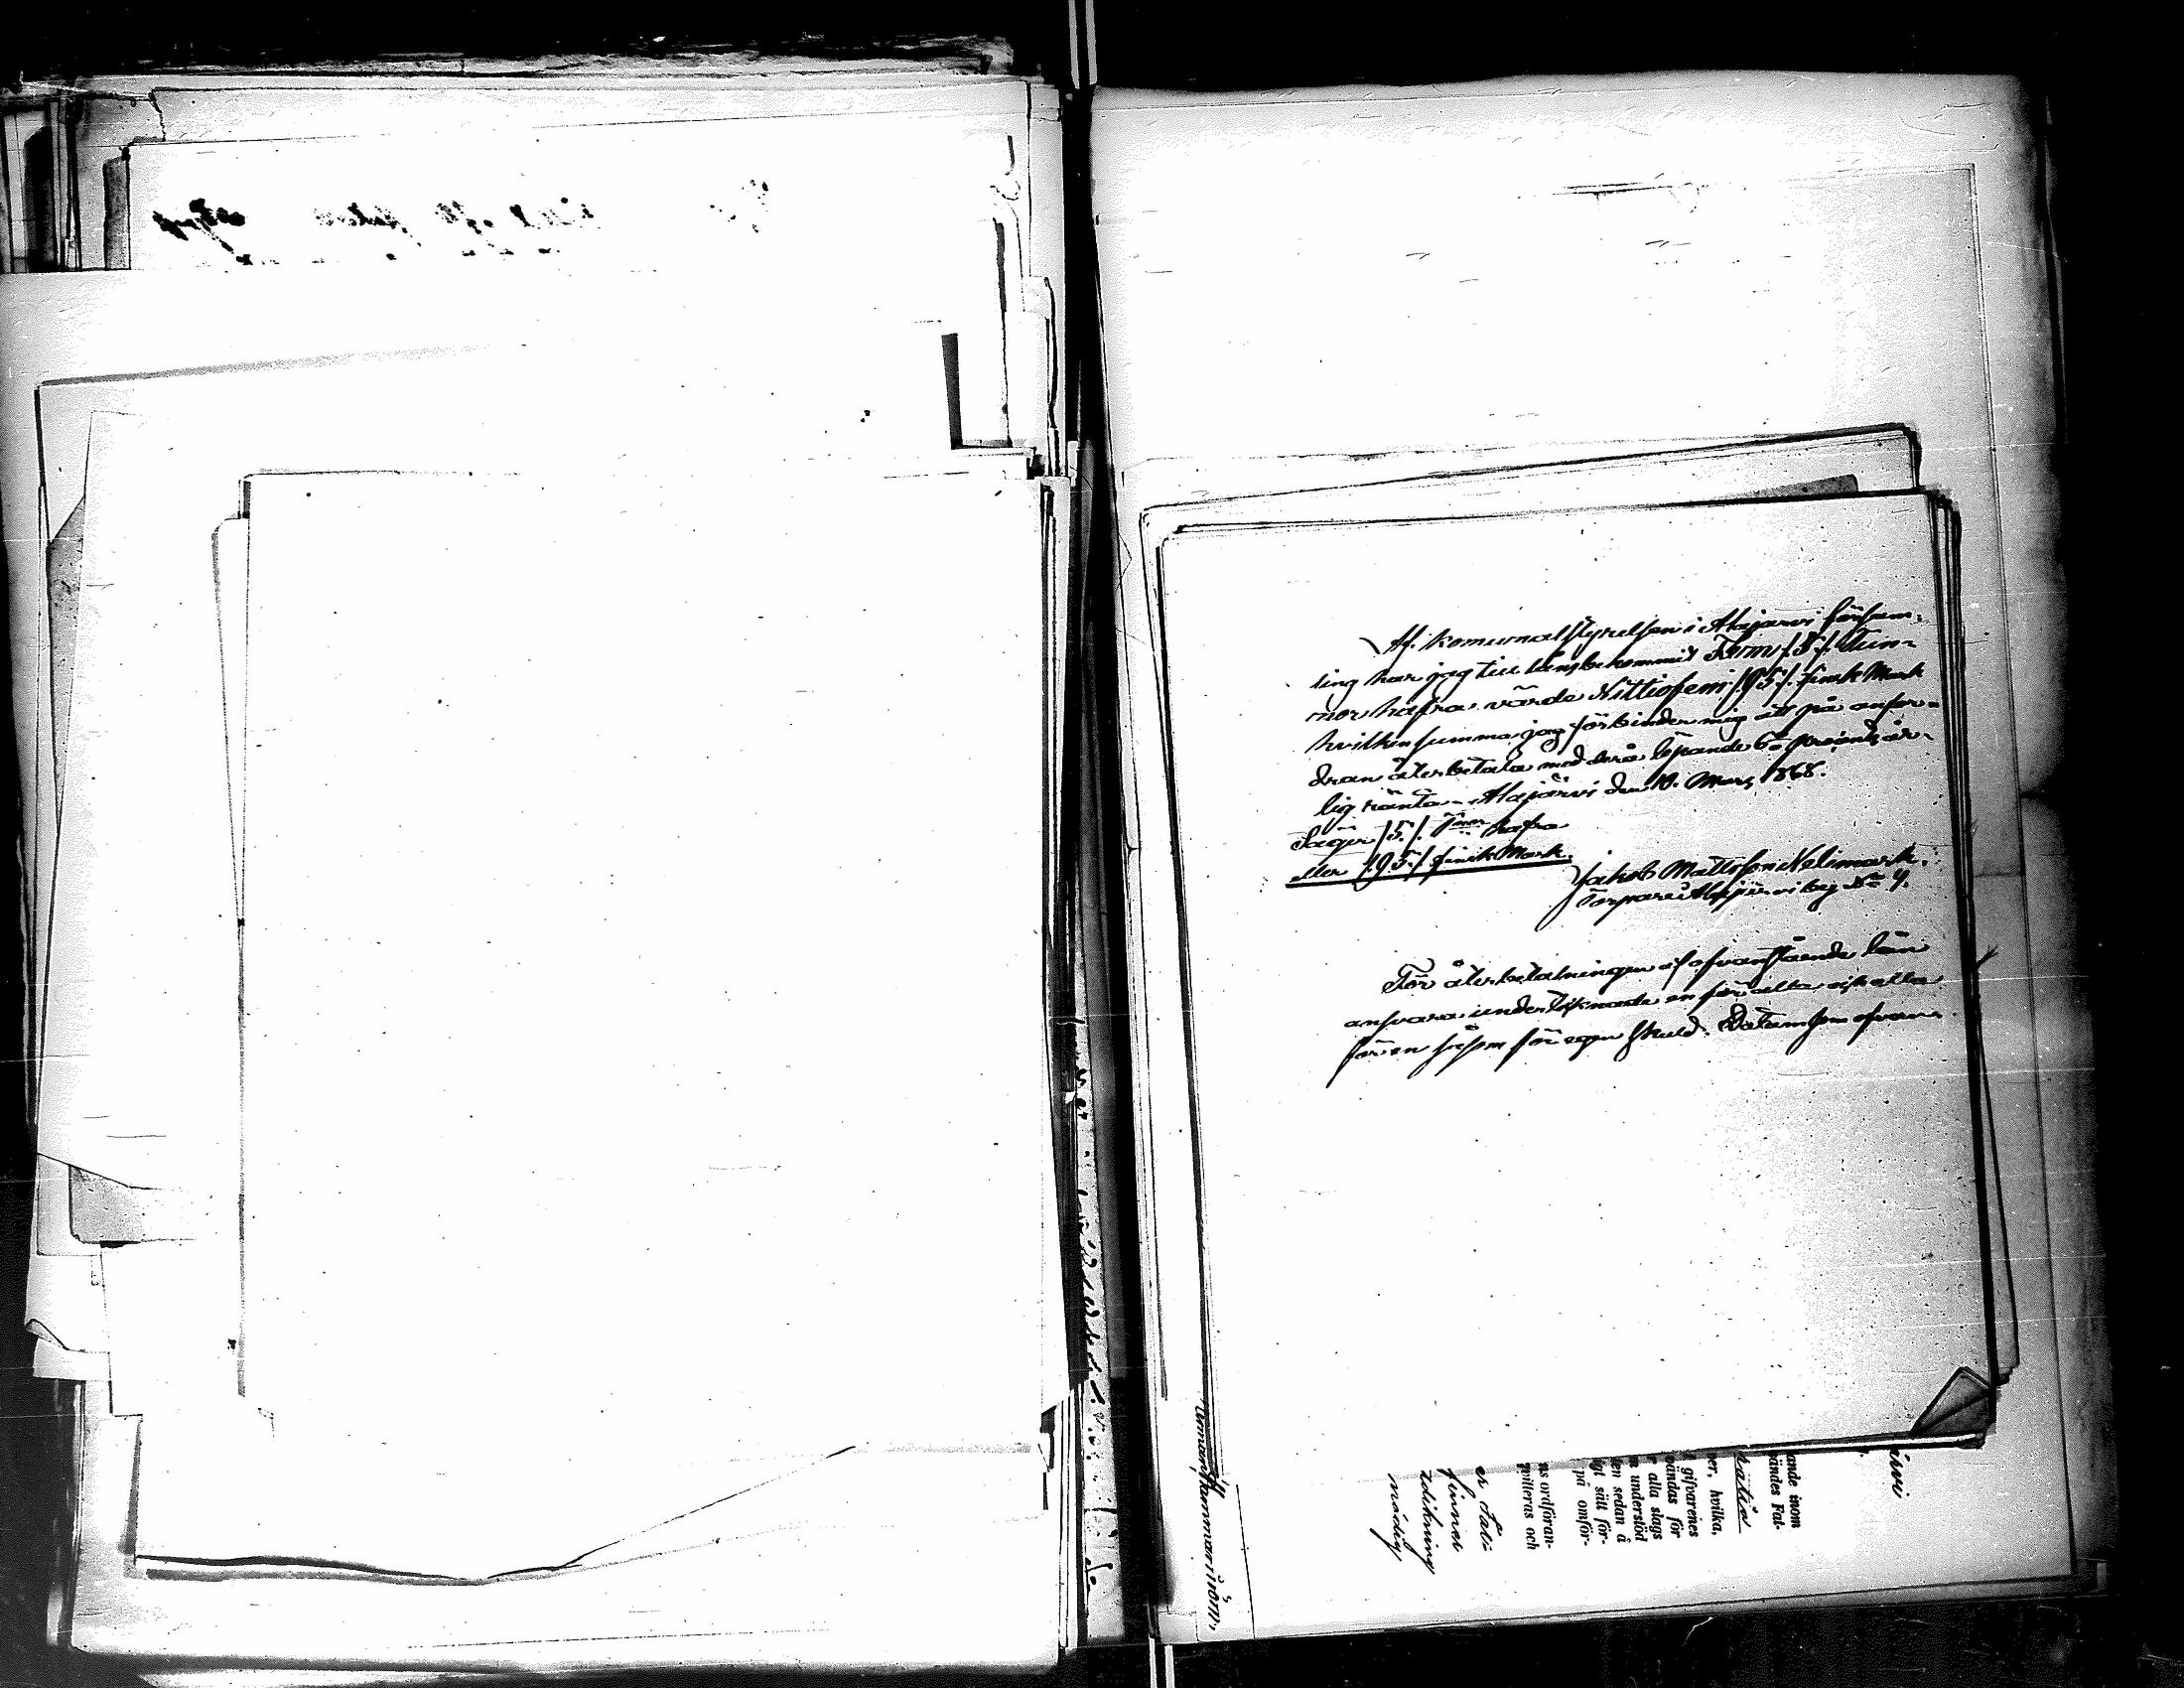 Af. Komunalstyrelsen i Alajarvi försam-
ling har jag till låns bekommit Fem /.5./. Tun-
nor hafra värde Nittiofem /.95./. finsk Mark
hvilken summa jag förbinder mig att på anfor-
dran återbetala med derå löpande 6% procent år-
lig ränta. Alajärvi den 10. Mars 1868.
Säger /5./. T:nor hafra
eller /.95./ finsk Mark.
Jakob Mattsson Nelimark.
Torpare i Alajärvi by No 4.
För återbetalningen af ofvanstående lån
ansvara undertecknade en för alla och alla
för en såsom för egen skuld. Datum som ofvan.
ande inom
händes Fal-
ner, hvilka,
gifvarenes
vändas för
alla slags
understöd
en sedan å
igt sätt för-
på omför-
ns ordföran-
qvitteras och
finnes
nödig
ärvi